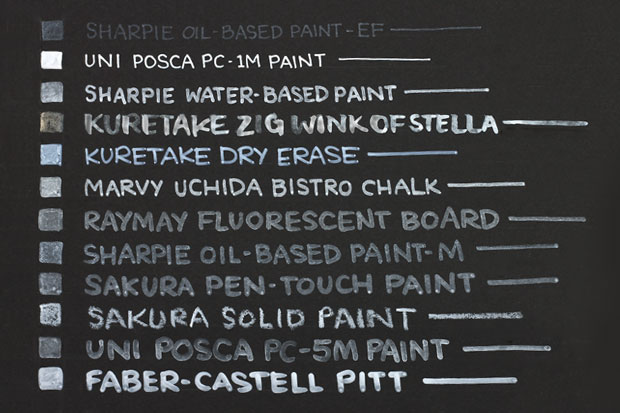 SHARPIE OIL-BASED PAINT-EF
UNI POSCA PC-1M PAINT
SHARPIE WATER-BASED PAINT
KURETAKE ZIG WINK OF STELLA
KURETAKE DRY ERASE
MARVY UCHIDA BISTRO CHALK
RAYMAY FLUORESCENT BOARD
SHARPIE OIL-BASED PAINT-M
SAKURA PEN-TOUCH PAINT
SAKURA SOLID PAINT
UNI POSCA PC-5M PAINT
FABER-CASTELL PITT